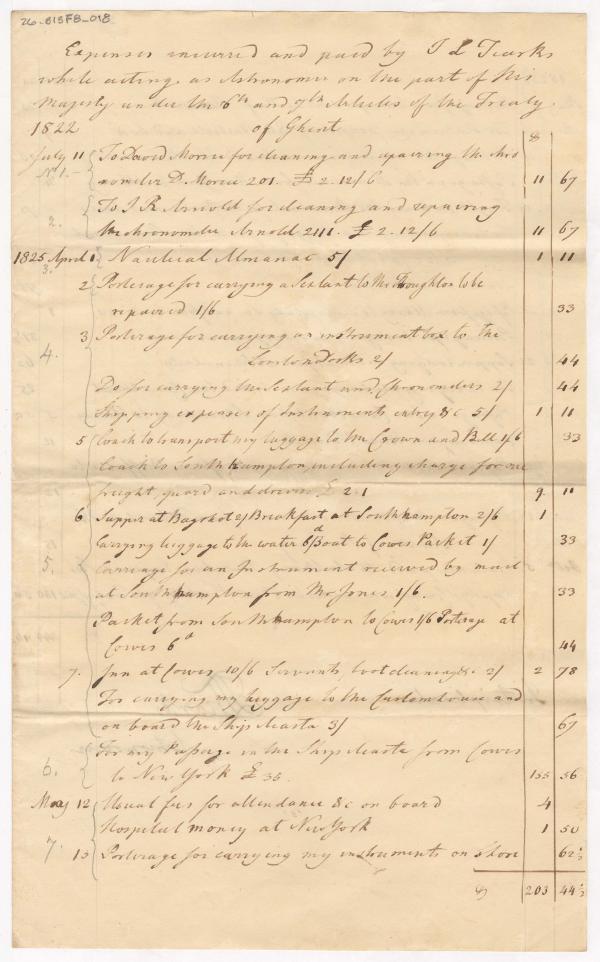 26-B15F8-018
Expenses incurred and paid by J L Tiarks
while acting as Astronomer on the part of His
Majesty under the 6th and 7th Articles of the Treaty
1822 of Ghent $
July 11 To David Morice for cleaning and repairing the chro
No 1.- nometer D. Morice 201. £ 2.12/6 11 67
2. To J R Arnold for cleaning and repairing
the chronometer Arnold 2111. £ 2.12/6 11 67
1825 April 1 Nautical Almanac 5/ 1 11
3.
2 Porterage for carrying a Sextant to Mr Troughton to be
repaired 1/6 33
3 Porterage for carrying an instrument box to the
4. London Docks 2/ 44
Do for carrying the Sextant and Chronometers 2/ 44
Shipping expenses of Instruments entry &c 5/ 1 11
5 Coach to transport my luggage to the Crown and Bell 1/6 33
Coach to Southhampton, including charge for
freight, guard and drivers £ 2.1 9 11
6 Supper at Bagshot 2/ Breakfast at Southhampton 2/6 1
Carrying luggage to the water 6d/ Boat to Cowes Packet 1/ 33
5. Carriage for an Instrument received by mail
at Southhampton from Mr Jones 1/6. 33
Packet from Southhampton to Cowes 1/6 Porterage at
Cowes 6d 44
7. Inn at Cowes 10/6 Servants, bootcleaning &c 2/ 2 78
For carrying my luggage to the Customhouse and
on board the Ship Mearta 3/ 67
For my Passage in the Ship Mearta from Cowes
6. to New York £ 35. 155 56
May 12 Usual fees for attendance &c on board 4
Hospital money at New York 1 50
7.
13 Porterage for carrying my instruments on shore 62½
$ 203 44½